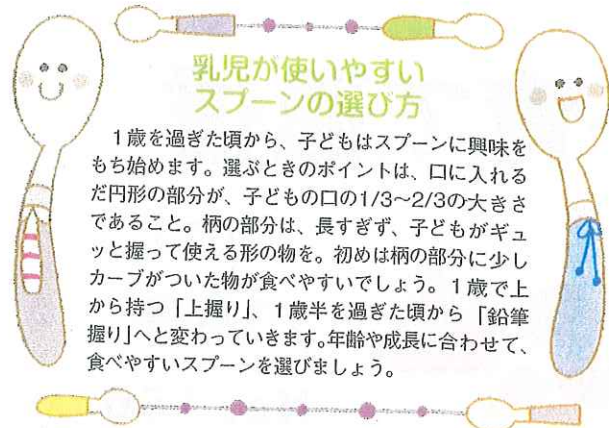 乳児が使いやすい
スプーンの選び方
1歳を過ぎた頃から、子どもはスプーンに興味を
もち始めます。選ぶときのポイントは、口に入れる
だ円形の部分が、子どもの口の1/3~2/3の大きさ
であること。柄の部分は、長すぎず、子どもがギュ
ッと握って使える形の物を。初めは柄の部分に少し
カーブがついた物が食べやすいでしょう。1歳で上
から持つ「上握り」、1歳半を過ぎた頃から「鉛筆
握り」へと変わっていきます。年齢や成長に合わせて、
食べやすいスプーンを選びましょう。